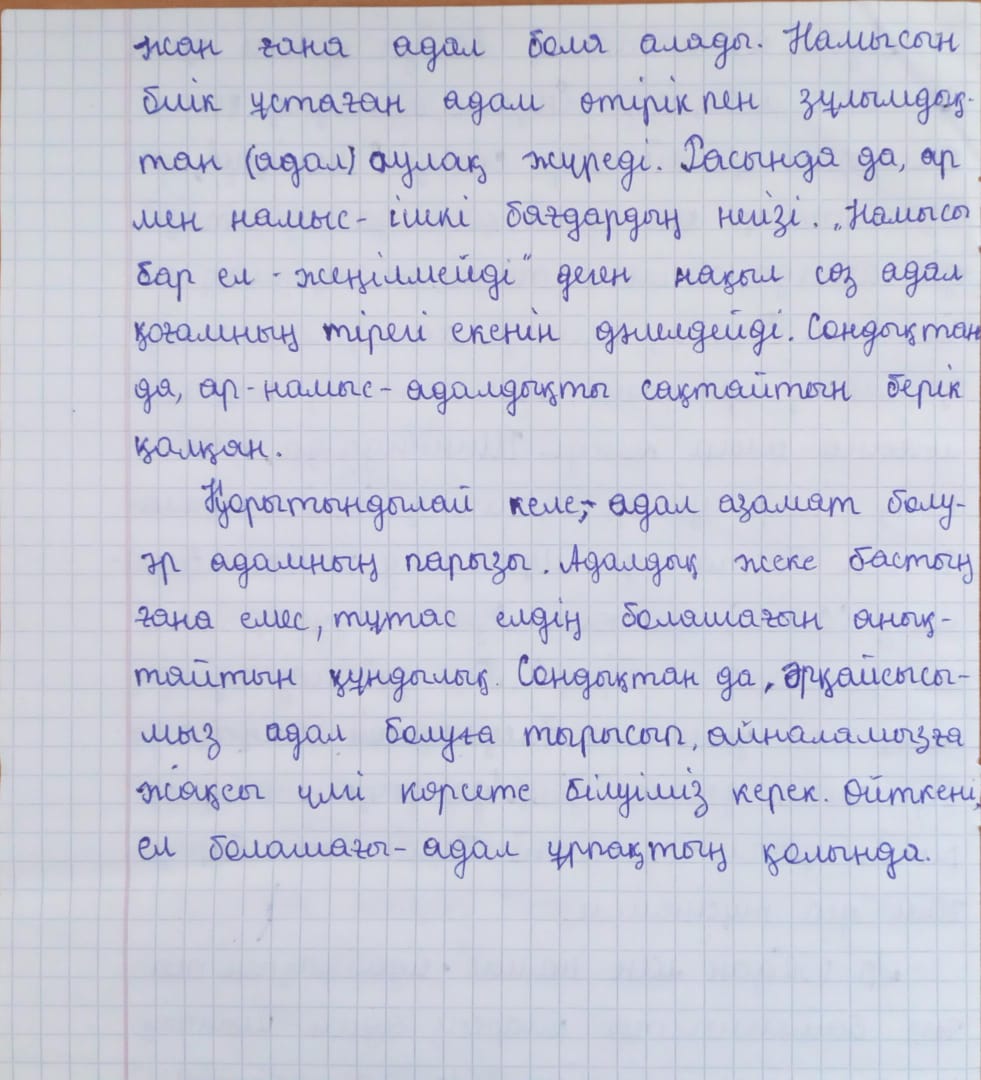 жан ғана адал бола алады. Намысын
биік ұстаған адам өтірікпен зұлымдық-
тан (адал) аулақ жүреді. Расында да, ар
мен намыс - ішкі бағдардың негізі. „Намысы
бар ел - жеңілмейді" деген мақыл сөз адал
қоғамның тірегі екенін дәлелдейді. Сондықтан
да, ар-намыс - адалдықты сақтайтын берік
қалқан.
Қорытындылай келе, адал азамат болу-
әр адамның парызы. Адалдық жеке бастың
ғана емес, тұтас елдің болашағын анық-
тайтын құндылық. Сондықтан да, әрқайсысы-
мыз адал болуға тырысып, айналамызға
жақсы үлгі көрсете білуіміз керек. Өйткені,
ел болашағы - адал ұрпақтың қолында.